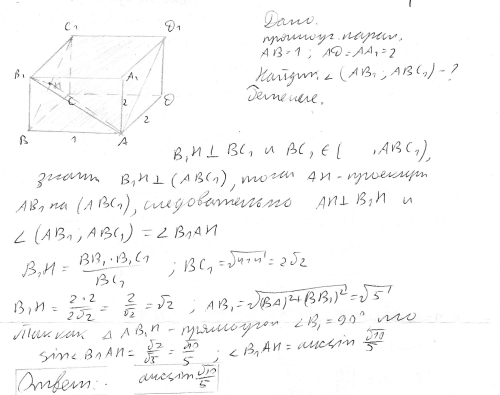 C₁ D₁
B₁ A₁
H
C D
2
2
B 1 A
Дано.
прямоуг. парал.
AB=1; AD=AA₁=2
Найдти ∠(AB₁; ABC₁)-?
Решение.
B₁H⊥BC₁ и BC₁∈( ,ABC₁),
значит B₁H⊥(ABC₁), тогда AH-проекция
AB₁ на (ABC₁), следовательно AH⊥B₁H и
∠(AB₁; ABC₁)=∠B₁AH
B₁H = BB₁·B₁C₁/BC₁ ; BC₁=√4+4=2√2
B₁H = 2·2/2√2 = 2/√2 = √2 ; AB₁=√(BA)²+(BB₁)²=√5
Так как △AB₁H-прямоугол ∠B₁=90° то
sin∠B₁AH = √2/√5 = √10/5 ; ∠B₁AH=arcsin √10/5
Ответ: arcsin √10/5